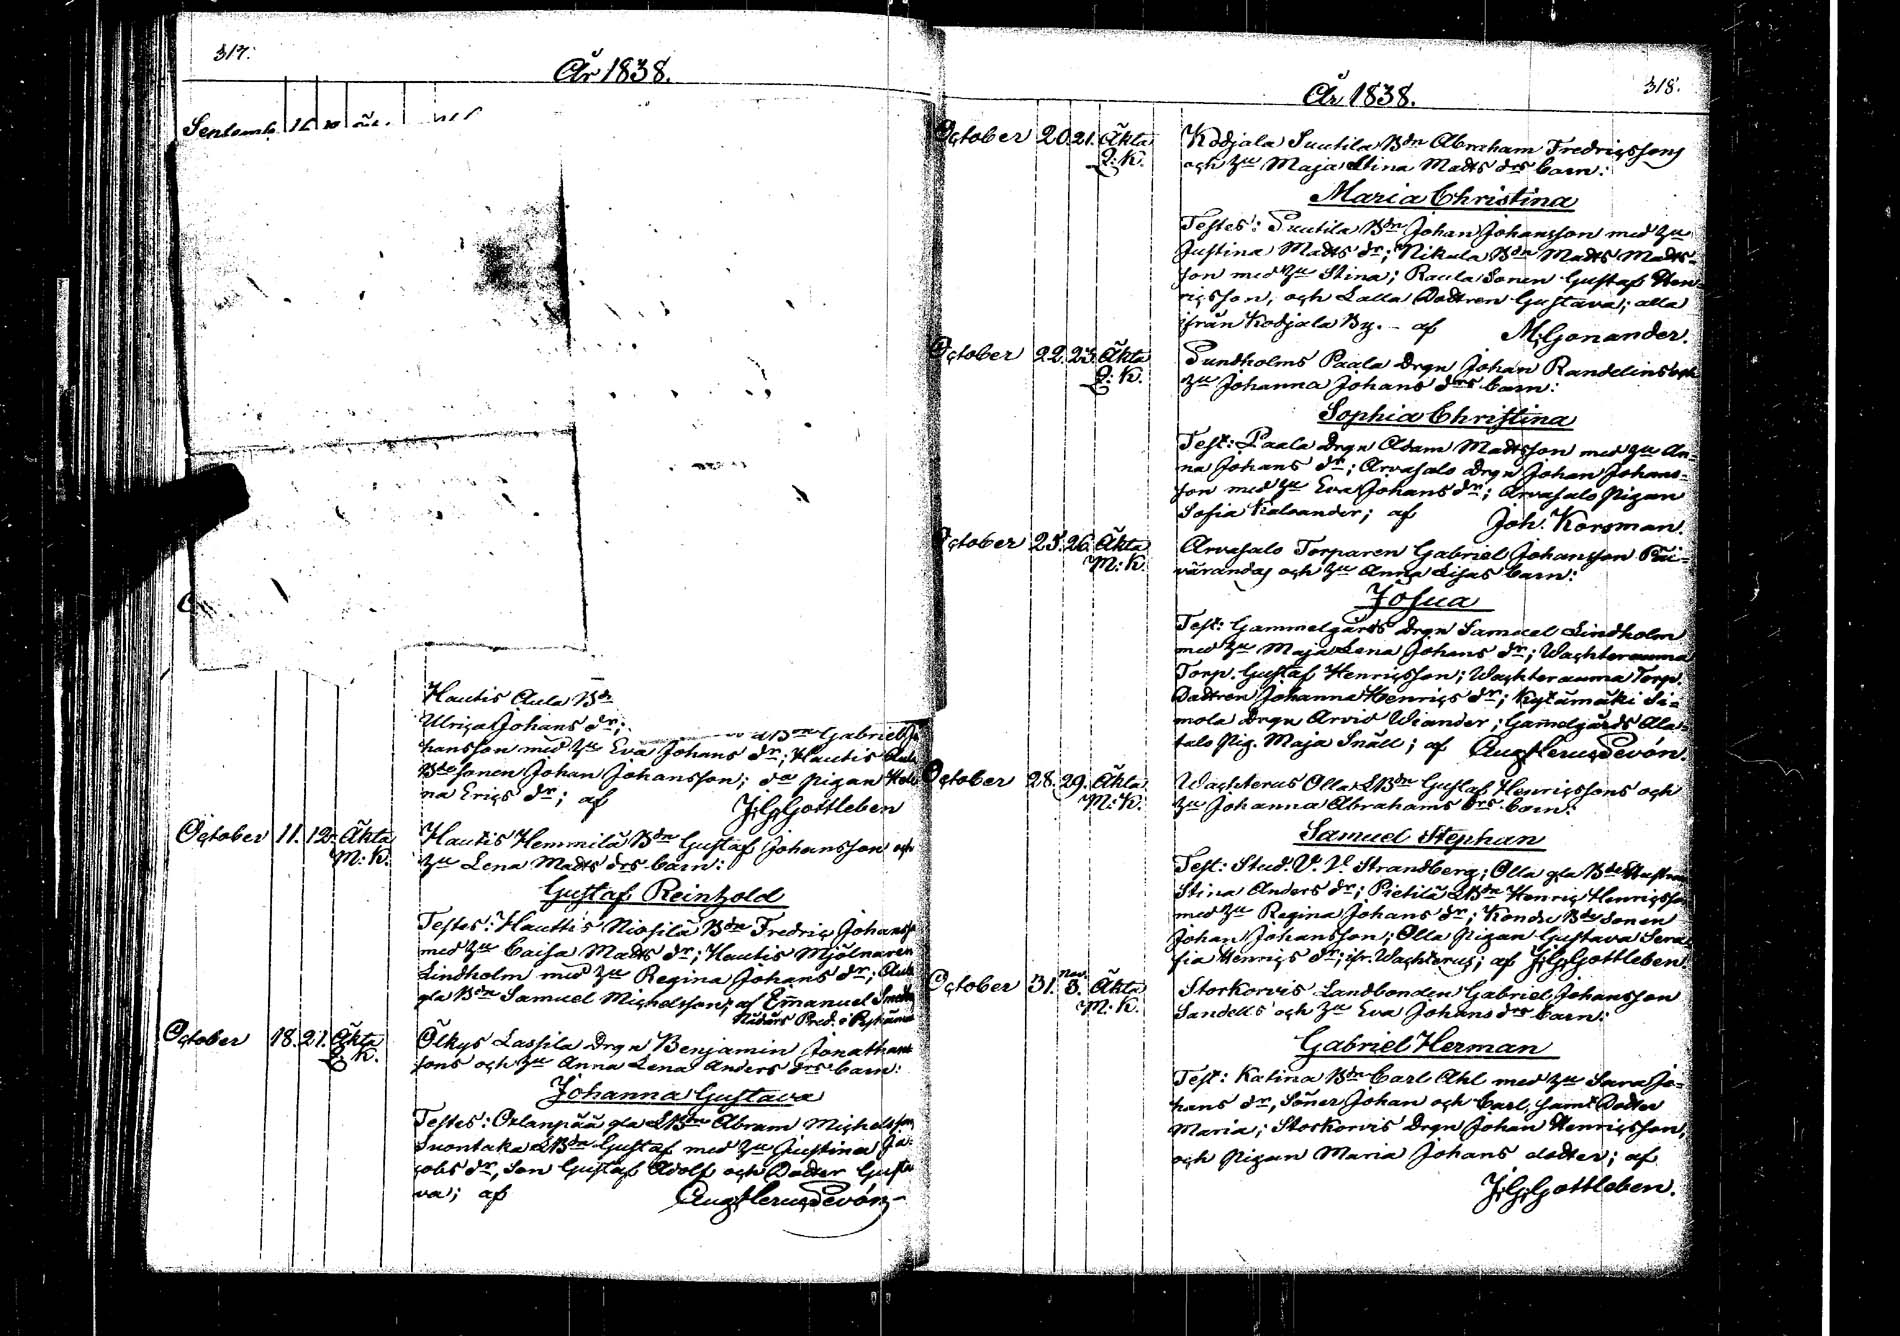 317.
År 1838.
Septemb.
Hautis Aula Bd
Ulrica Johans dr;
Bdn Gabriel Jo
hansson med Hu Eva Johans dr; Hautis Aula
Bde sonen Johan Johansson; do pigan Hele
na Erics dr; af J.G.Gottleben
October 11. 12. Äkta Hautis Hemmilä Bdn Gustaf Johansson och
M: K. Hu Lena Madts drs barn:
Gustaf Reinhold
Testes: Hauttis Niosilä Bdn Fredric Johanss
med Hu Caisa Madts dr; Hautis Mjölnaren
Lindholm med Hu Regina Johans dr; Aula
gla Bdn Samuel Michelsson; af Emanuel
Pred. i
October 18. 21. Äkta Ölkys Lassila Drgn Benjamin Jonathans
Q: K. sons och Hu Anna Lena Anders drs barn:
Johanna Gustava
Testes: Orlanpää gla LBdn Abram Michelsson
Suontaka LBdn Gustaf med Hu Justina Ja
cobs dr, Son Gustaf Adolf och Dotter Gusta
va; af Aug.Hercs.Pevón
År 1838.
318.
October 20. 21. Äkta Kodjala Suutila Bdn Abraham Fredricssons
Q: K. och Hu Maja Stina Madts drs barn:
Maria Christina
Testes: Suutila Bdn Johan Johansson med Hu
Justina Madts dr; Nikula Bdn Madts Madts-
son med Hu Stina; Raula Sonen Gustaf Hen-
ricsson, och Lalla Dottren Gustava; alla
ifrån Kodjala By. – af M.Gonander.
October 22. 23. Äkta Sundholms Paala Drgn Johan Randelins och
Q: K. Hu Johanna Johans drs barn:
Sophia Christina
Test: Paala Drgn Adam Madtsson med Hu An-
na Johans dr; Arvasalo Drgn Johan Johans-
son med Hu Eva Johans dr; Arvasalo pigan
Sofia Kaleander; af Joh. Korsman.
October 25. 26. Äkta Arvasalo Torparen Gabriel Johansson
M: K. och Hu Anna Lisas barn:
Josua
Test: Gammelgårds Drgn Samuel Lindholm
med Hu Maja Lena Johans dr; Wachterauma
Torp. Gustaf Henricsson; Wachterauma Torp.
Dottren Johanna Henrics dr; Kytämäki Si-
mola Drgn Arvid Wiander; Gamelgårds Ala-
talo Pig. Maja Snäll; af Aug.Hercs.Pevón.
October 28. 29. Äkta Wachterus Olla LBdn Gustaf Henricssons och
M: K. Hu Johanna Abrahams drs barn:
Samuel Stephan
Test: Stud. V. Strandberg; Olla gla Bde Hustrun
Stina Anders dr; Pietilä LBdn Henric Henricsson
med Hu Regina Johans dr; Kondi Bde Sonen
Johan Johansson; Olla Pigan Gustava Sera
fia Henrics dr; ifr. Wachterus; af J.G.Gottleben.
October 31. Nov. 3. Äkta Storkorvis Landbonden Gabriel Johansson
M: K. Sandells och Hu Eva Johans drs barn:
Gabriel Herman
Test: Katina Bdn Carl Ahl med Hu Sara Jo-
hans dr, Söner Johan och Carl, samt Dotter
Maria; Storkorvis Drgn Johan Henricsson,
och Pigan Maria Johans dotter; af
J.G.Gottleben.